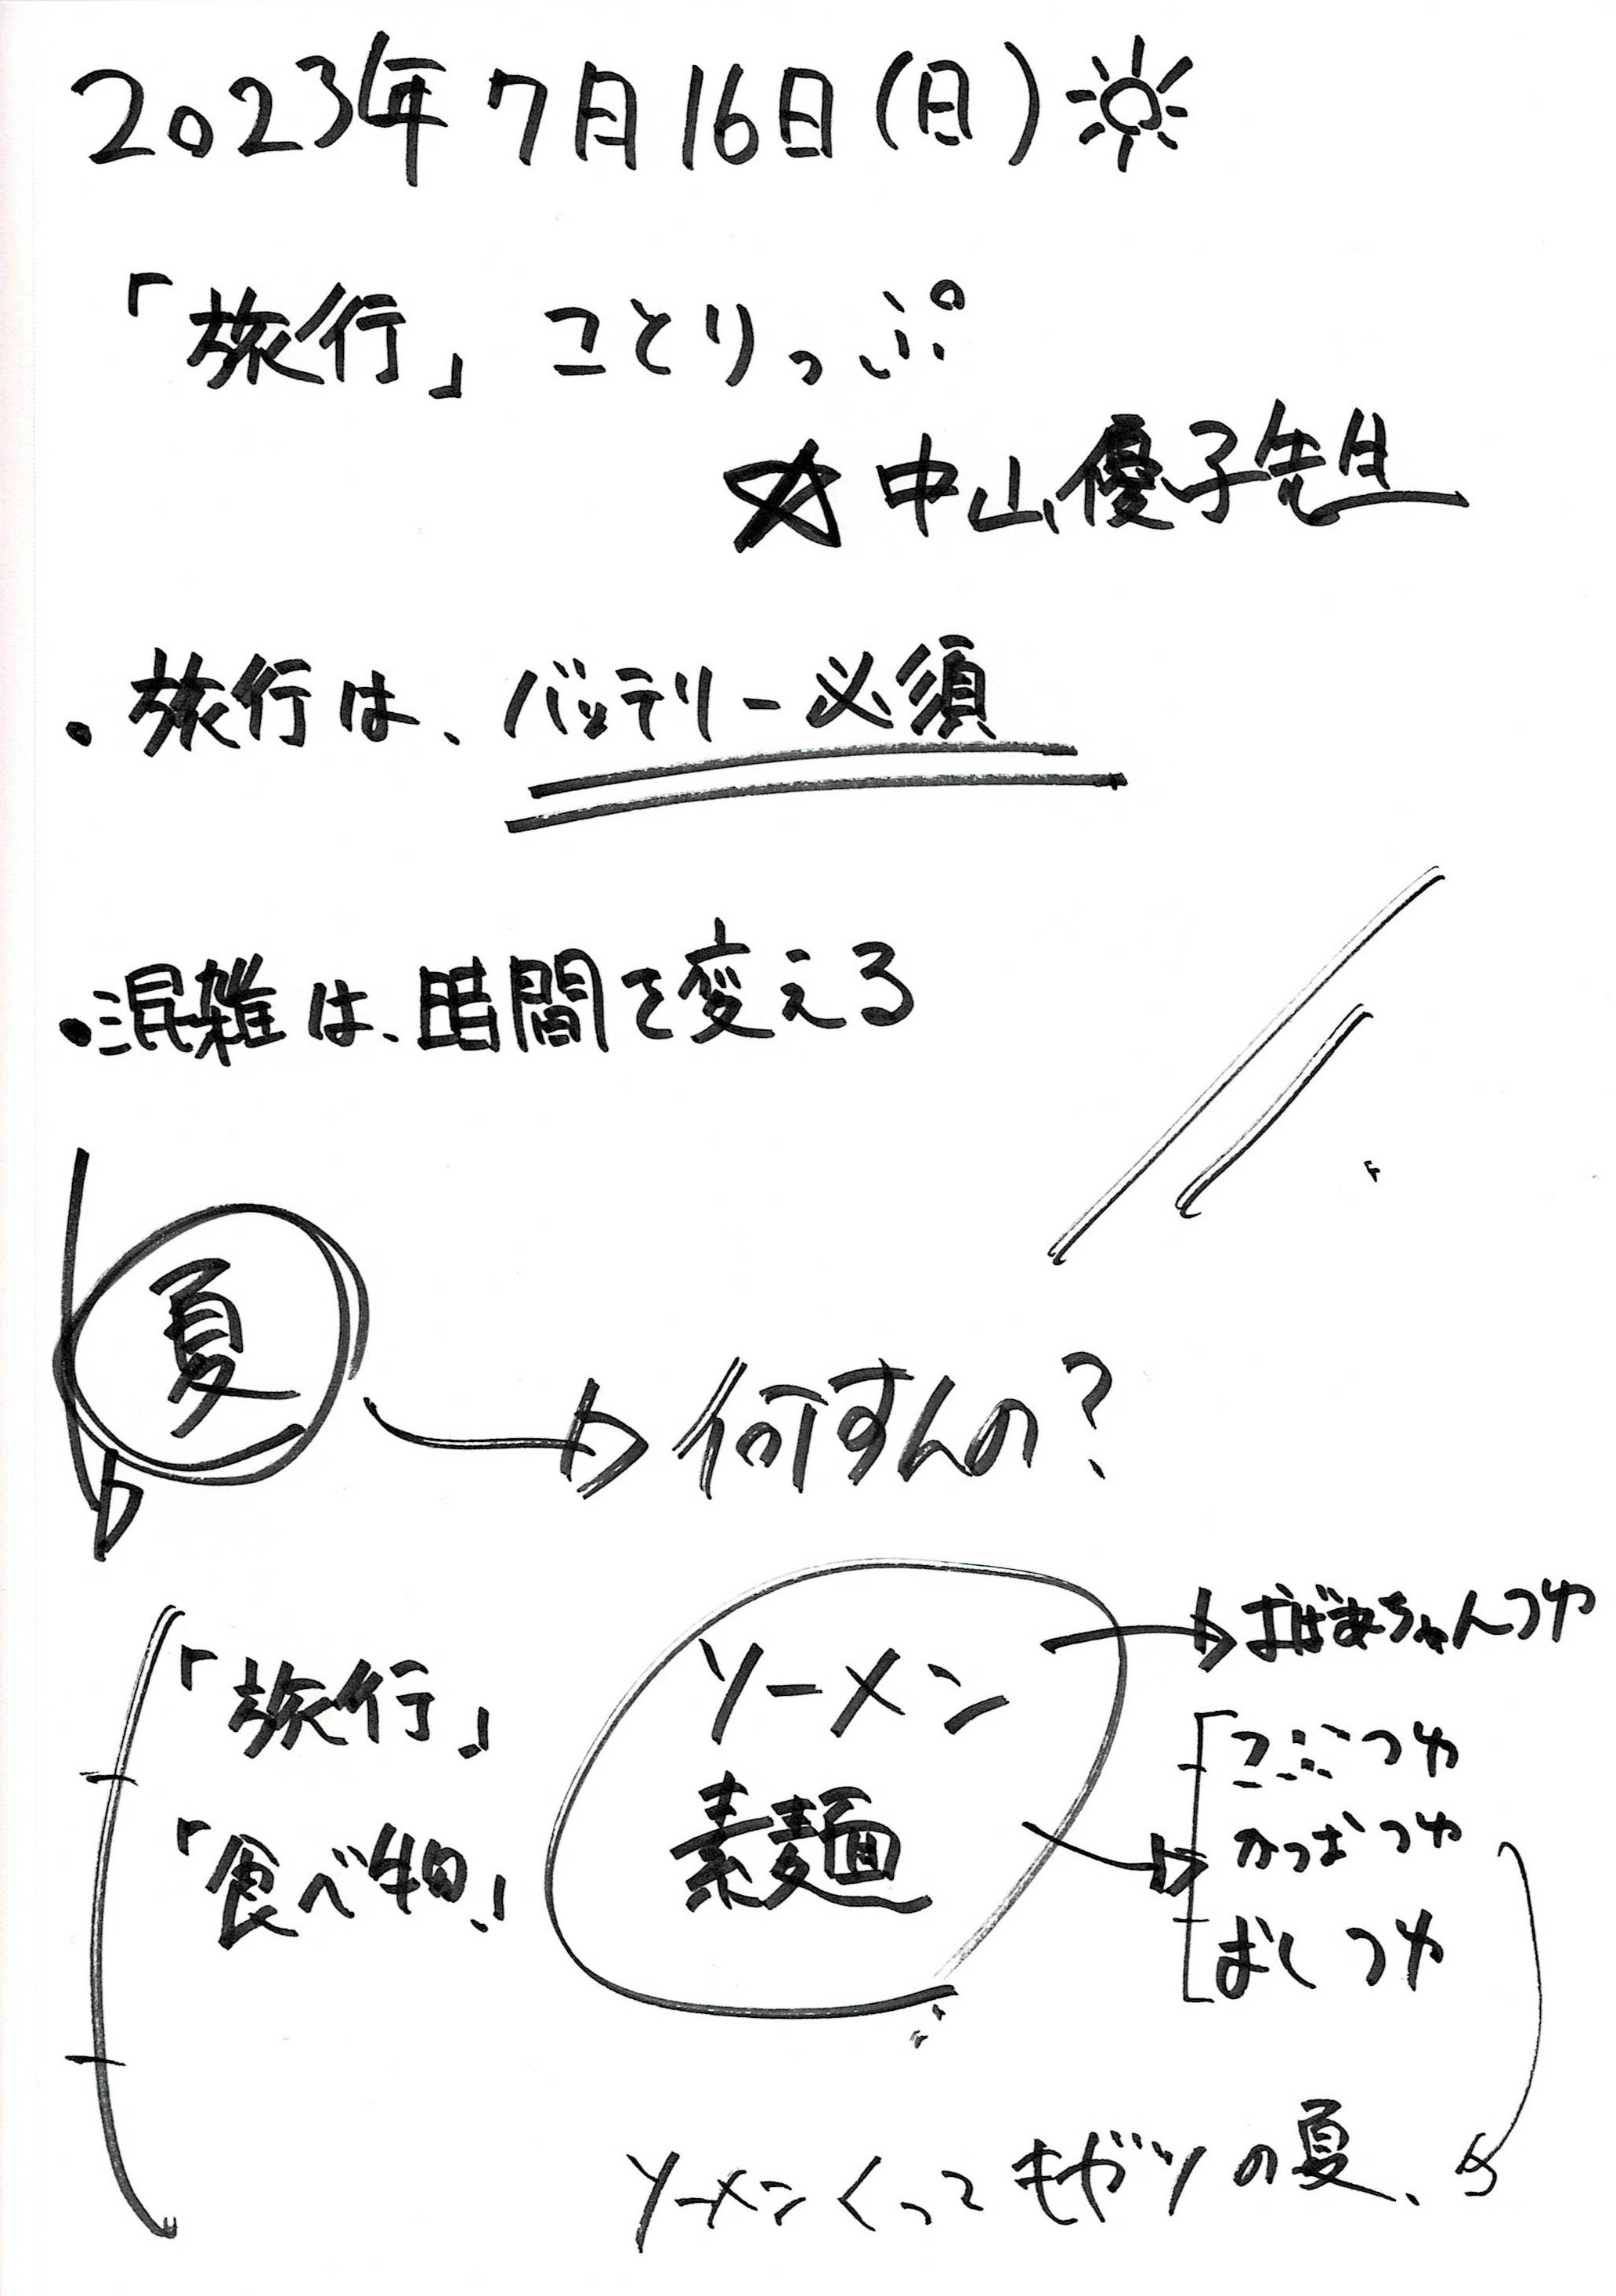 2023年7月16日(日)
「旅行」ことりっぷ
☆中山優子先生
・旅行は、バッテリー必須
・混雑は、時間を変える
夏
何すんの？
「旅行」
「食べ物」
ソーメン
素麺
おばあちゃんつゆ
こぶつゆ
かつおつゆ
ぼしつゆ
ソーメンくって の夏、